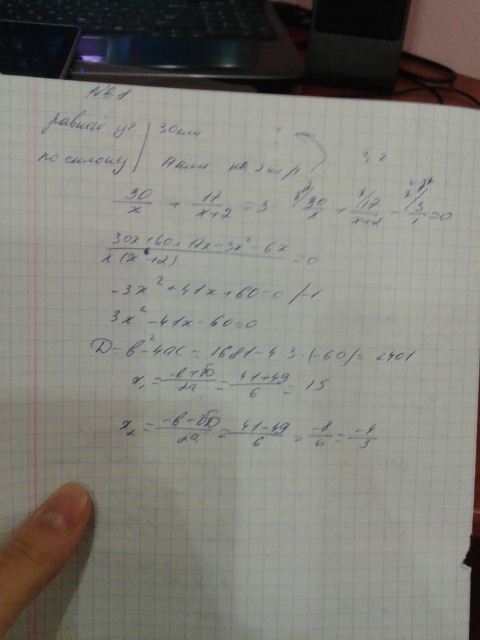 № 1
30 км
по склону
30/x + 17/x+2 = 3 30/x + 17/x+2 - 3/1 = 0
30x+60+17x-3x²-6x/x(x+2) = 0
-3x²+41x+60=0 /-1
3x²-41x-60=0
D=b²-4ac=1681-4·3·(-60)=2401
x₁=-b+√D/2a=41+49/6=15
x₂=-b-√D/2a=41-49/6=-8/6=-4/3